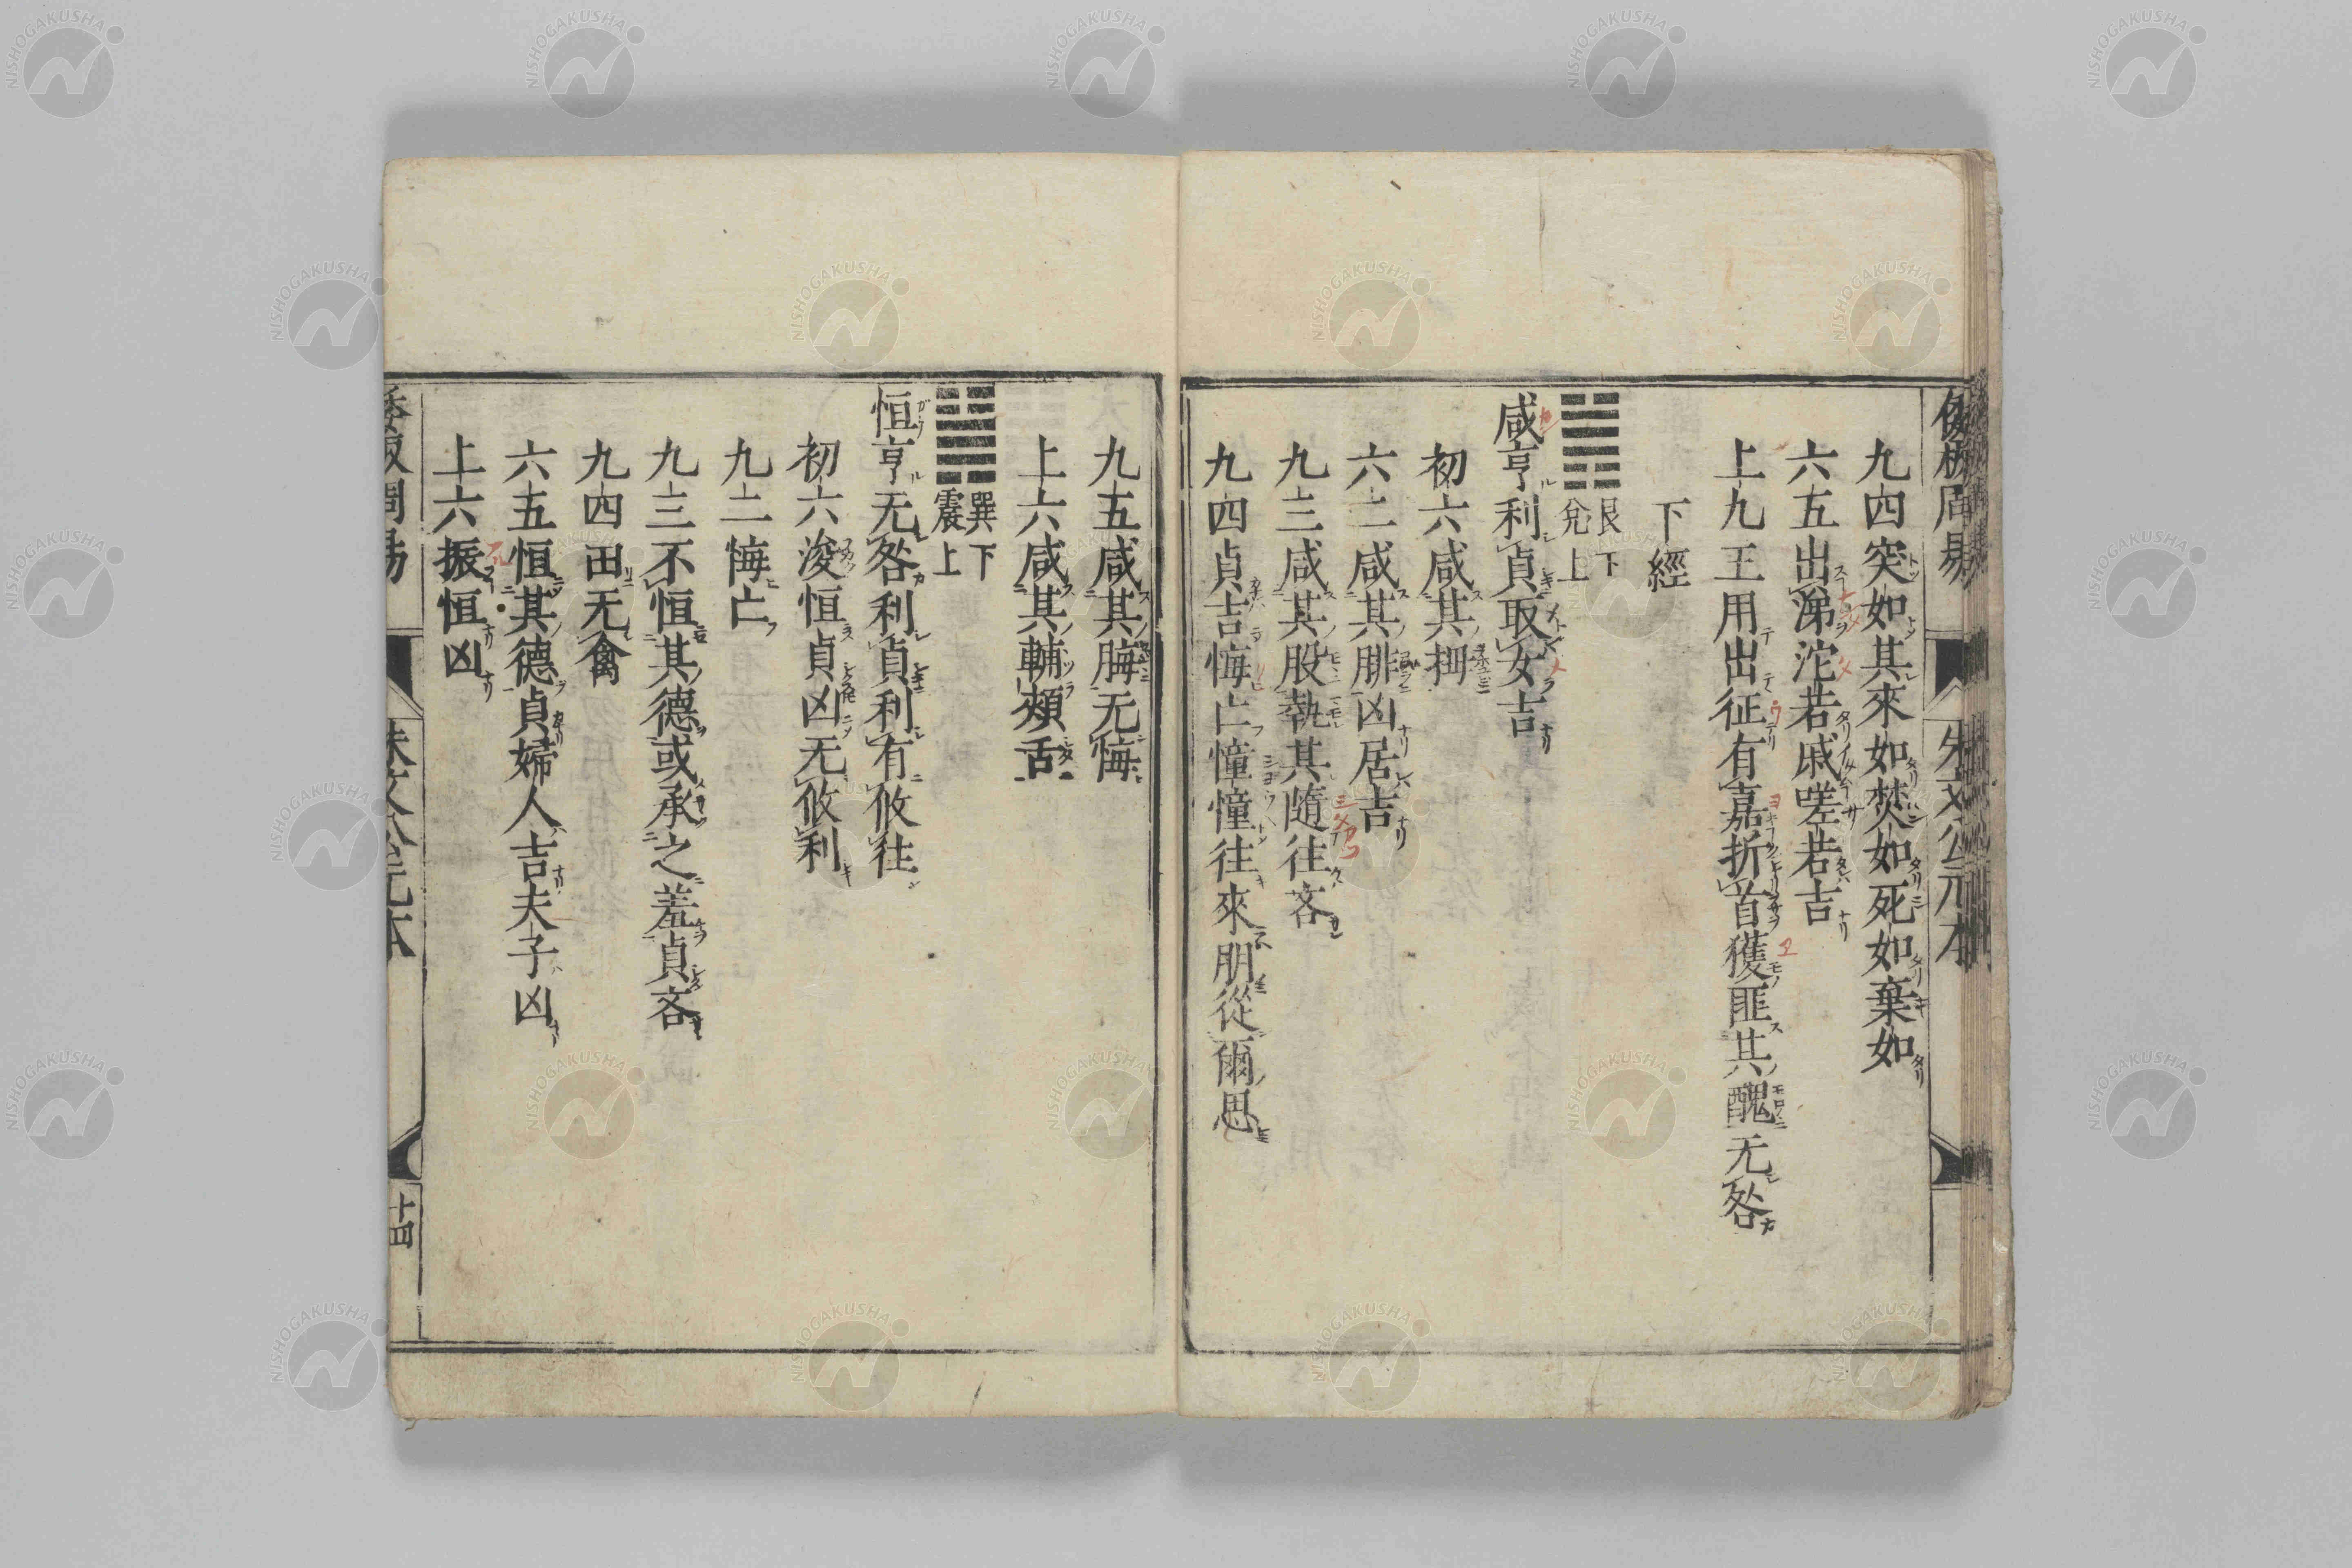 九四突如其來如焚如死如棄如
六五出涕沱若戚嗟若吉
上九王用出征有嘉折首獲匪其醜无咎
下經
艮下
兌上
咸亨利貞取女吉
初六咸其拇
六二咸其腓凶居吉
九三咸其股執其隨往吝
九四貞吉悔亡憧憧往來朋從爾思
九五咸其脢无悔
上六咸其輔頰舌
巽下
震上
恒亨无咎利貞利有攸往
初六浚恒貞凶无攸利
九二悔亡
九三不恒其德或承之羞貞吝
九四田无禽
六五恒其德貞婦人吉夫子凶
上六振恒凶
倭板周易 朱文公元本 十四
NISHOGAKUSHA